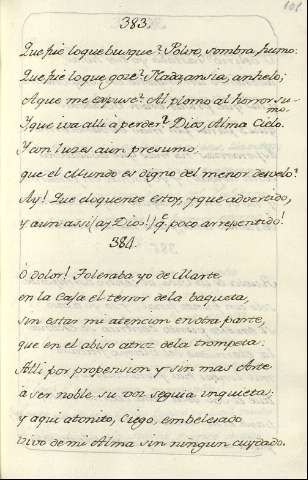 101
383.
Que fué loque busque? Polvo, sombra, humo.
Que fué lo que gozé? Nada, ansia, anhelo;
A que me expuse? Al plomo al horror su-
mo.
Y que iva alli à perder? Dios, Alma Cielo.
Y con luzes aùn presumo
que el Mundo es digno del menor desvelo?
Ay! Que eloquente estoy, y que advertido,
y aun assi (ay Dios!) q. poco arrepentido!
384.
ò dolor! Toleraba yo de Marte
en la Caja el terror dela baqueta,
sin estar mi atencion en otra parte,
que en el abiso atroz dela trompeta:
Alli por propension y sin mas Arte
à ser noble su voz seguia inquieta;
y aqui atonito, Ciego, embelesado
vivo de mi Alma sin ningun cuydado.